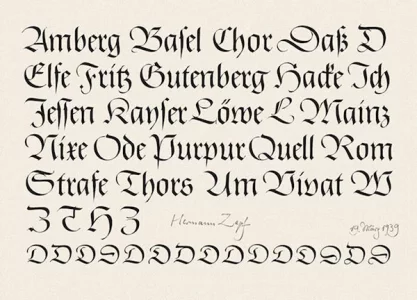 Amberg Baſel Chor Daß D
Elſe Fritz Gutenberg Hacke Ich
Jeſſen Kayſer Löwe L Mainz
Nixe Ode Purpur Quell Rom
Straſe Thors Um Vivat W
Z T H Z
Hermann Zapf
März 1939
D D D D D D D D D D D D D D D